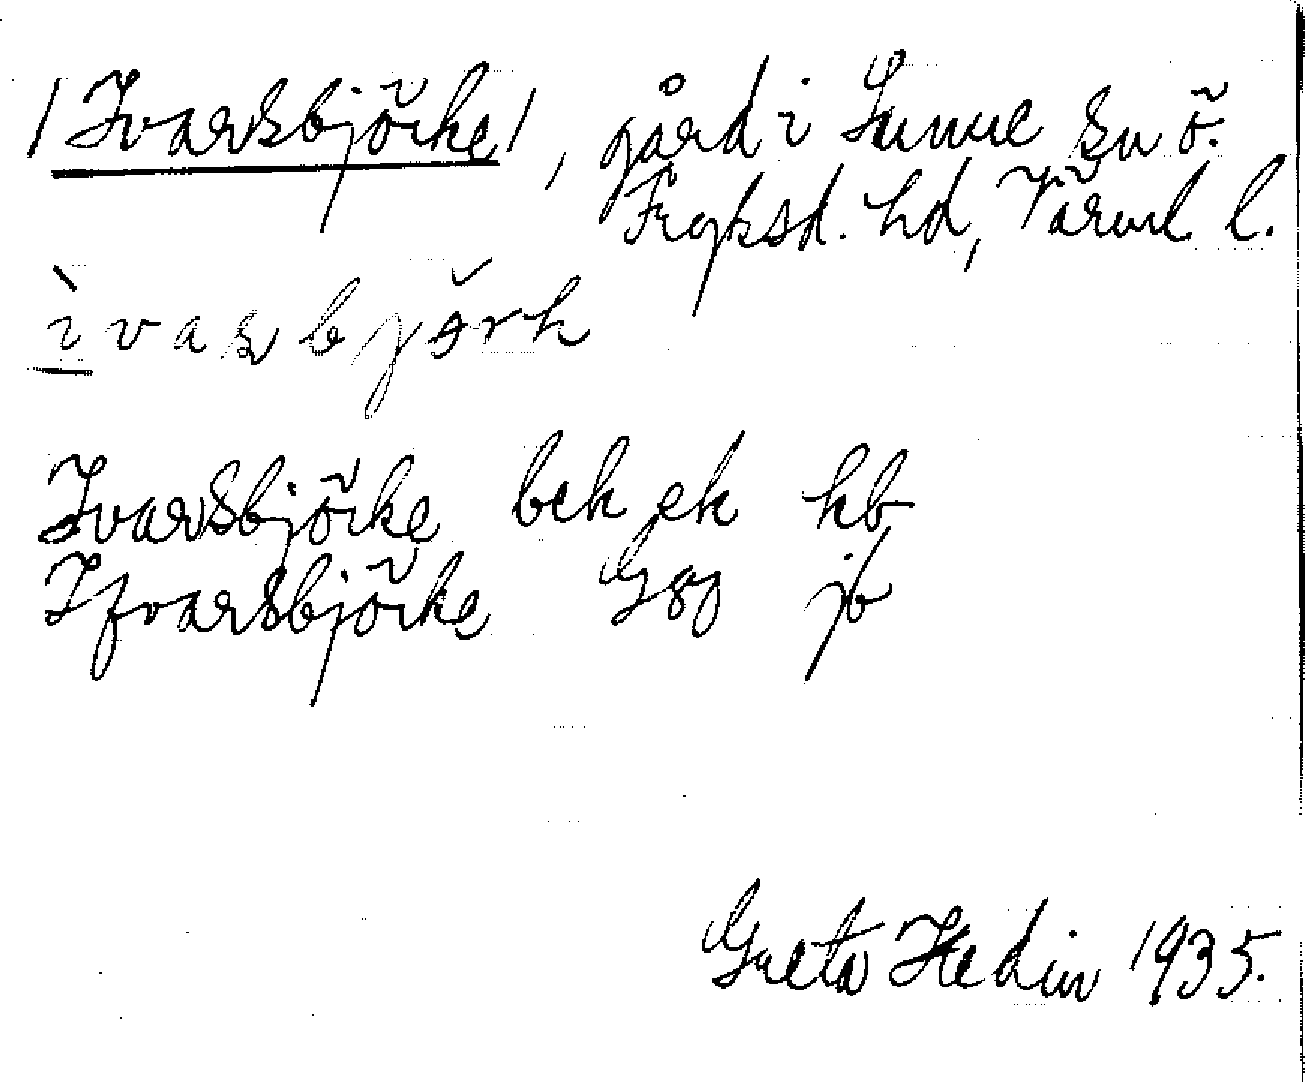 /Ivarsbjörke/, gård i Sunne sn ö.
Fryksd. hd, Värml. l.
Ivarsbjörke bek ek hb
Ifvarsbjörke Gsg jb
Greta Hedin 1935.